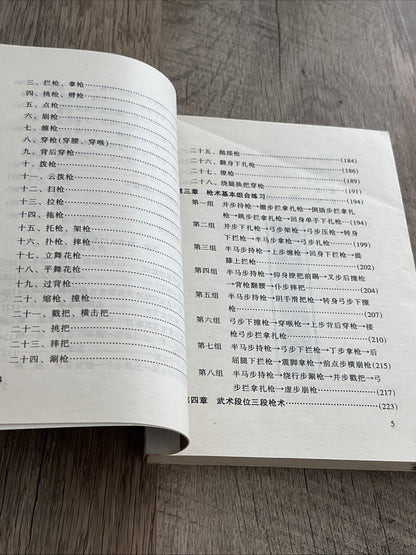 三、拦枪、拿枪
四、挑枪、劈枪
五、点枪
六、崩枪
七、缠枪
八、穿枪（穿腰、穿喉）
九、背后穿枪
十、拨枪
十一、云拨枪
十二、扫枪
十三、拉枪
十四、拖枪
十五、托枪、架枪
十六、扑枪、摔枪
十七、立舞花枪
十八、平舞花枪
十九、过背枪
二十、缩枪、撞枪
二十一、戳把、横击把
二十二、挑把
二十三、摔把
二十四、涮枪
二十五、抛接枪 (184)
二十六、翻身下扎枪 (186)
二十七、撩枪 (189)
二十八、绕腿换把穿枪 (191)
第三章 枪术基本组合练习 (194)
第一组 并步持枪→撤步拦拿扎枪→倒插步拦拿扎
枪→跳步拦拿扎枪→回身单手下扎枪 (194)
第二组 并步下扎枪→弓步架枪→弓步压枪→转身
下拦枪→半马步拿枪→弓步扎枪 (199)
第三组 半马步持枪→上步缠枪→回身下拦枪→提
膝上拦枪 (202)
第四组 半马步持枪→仰身撩把前踢→叉步后撞枪
→背枪腿腰→仆步摔把 (204)
第五组 半马步持枪→阴手滑把枪→转身弓步下撞
枪 (207)
第六组 弓步下撞枪→穿喉枪→上步背后穿枪→接
枪弓步拦拿扎枪
第七组 半马步持枪→弓步下拦枪→丁步拿枪→后
屈腿下拦枪→震脚拿枪→前点步横崩枪 (214)
第八组 半马步持枪→绕行步涮枪→并步戳把→弓
步拦拿扎枪→虚步崩枪 (217)
第四章 武术段位三段枪术 (223)
5